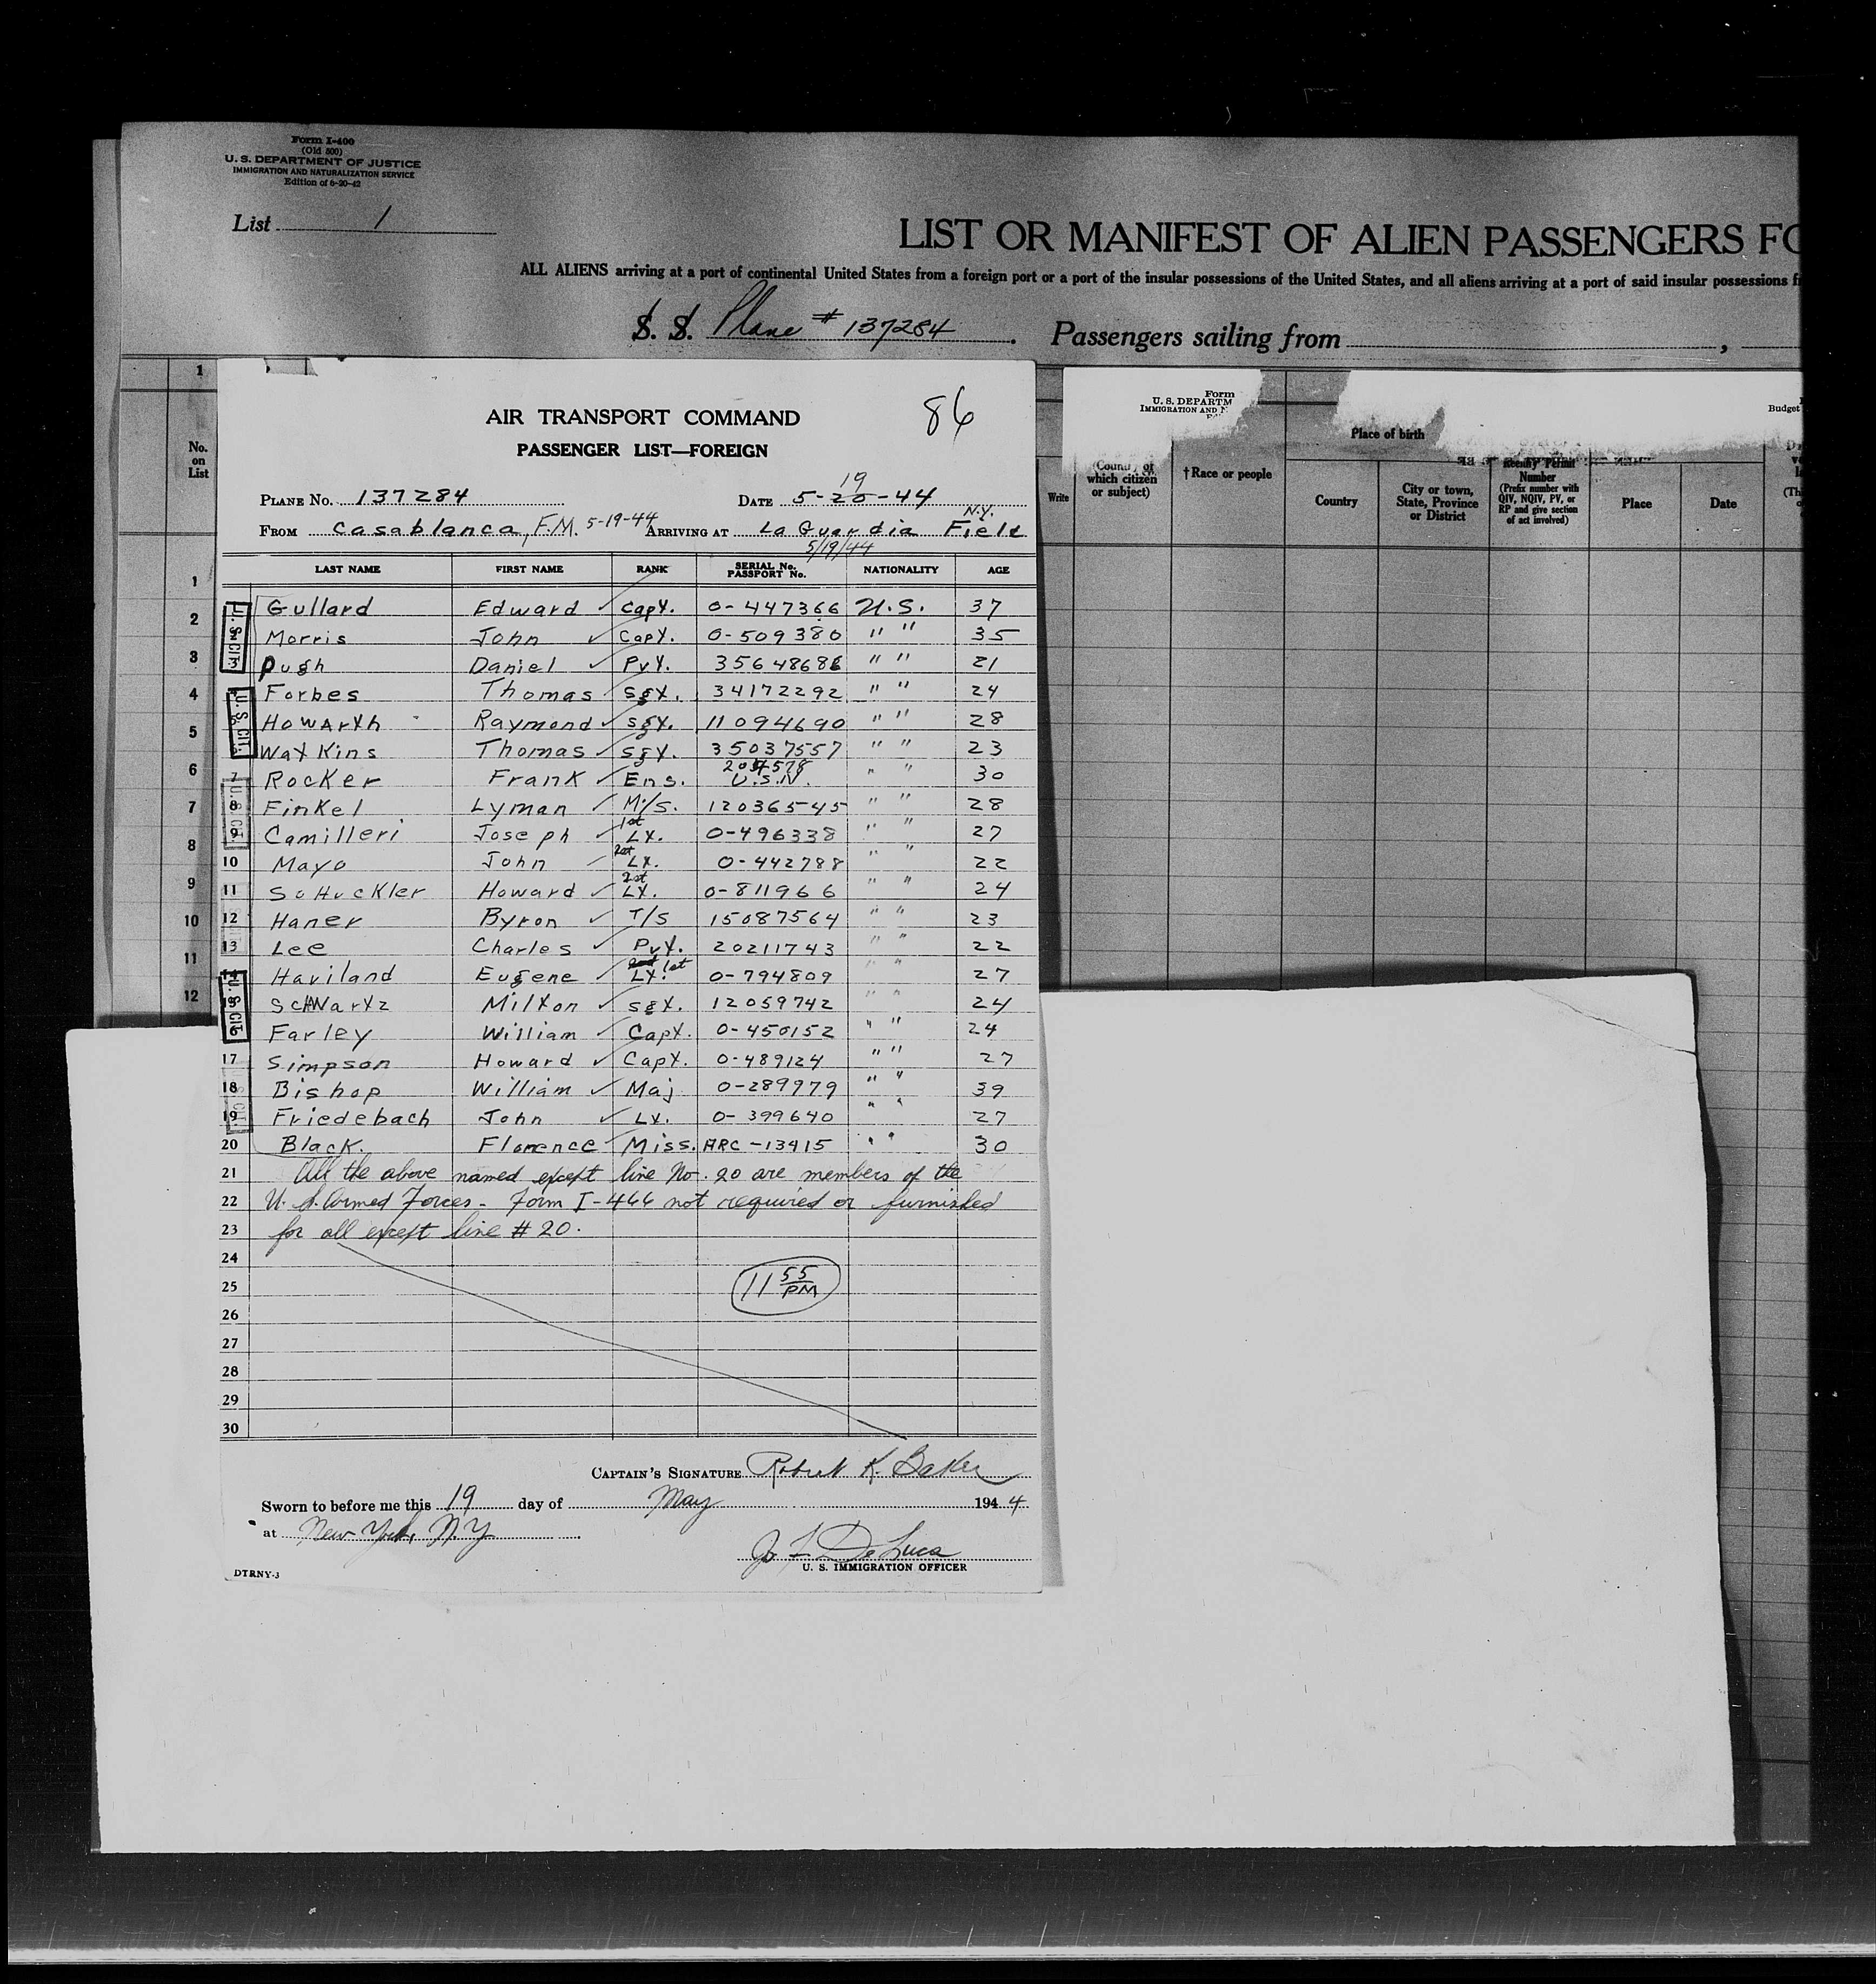 Form I-400
(Old 500)
U. S. DEPARTMENT OF JUSTICE
IMMIGRATION AND NATURALIZATION SERVICE
Edition of 6-20-42
List 1
LIST OR MANIFEST OF ALIEN PASSENGERS FO
ALL ALIENS arriving at a port of continental United States from a foreign port or a port of the insular possessions of the United States, and all aliens arriving at a port of said insular possessions f
S. S. Plane # 137284. Passengers sailing from ,
1
No. on List
Write
(Country of which citizen or subject)
†Race or people
Form
U. S. DEPARTM
IMMIGRATION AND N
Place of birth
Budget
Country
City or town, State, Province or District
Reentry Permit Number
(Prefix number with QIV, NQIV, PV, or RP and give section of act involved)
Place
Date
(Th
1
2
3
4
5
6
7
8
9
10
11
12
AIR TRANSPORT COMMAND
86
PASSENGER LIST—FOREIGN
19
PLANE No. 137284 DATE 5-20-44
N.Y.
FROM Casablanca, F.M. 5-19-44 ARRIVING AT La Guardia Field
5/19/44
LAST NAME FIRST NAME RANK SERIAL No. PASSPORT No. NATIONALITY AGE
Gullard Edward Capt. 0-447366 U.S. 37
Morris John Capt. 0-509380 " " 35
Pugh Daniel Pvt. 35648686 " " 21
Forbes Thomas Sgt. 34172292 " " 24
Howarth Raymond Sgt. 11094690 " " 28
Watkins Thomas Sgt. 35037557 " " 23
7 Rocker Frank Ens. 204578 U.S.N. " " 30
8 Finkel Lyman M/S. 12036545 " " 28
9 Camilleri Joseph 1st Lt. 0-496338 " " 27
10 Mayo John 2st Lt. 0-442788 " " 22
11 Schuckler Howard 2st Lt. 0-811966 " " 24
12 Haner Byron T/S 15087564 " " 23
13 Lee Charles Pvt. 20211743 " " 22
14 Haviland Eugene Lt. 1st 0-794809 " " 27
Schwartz Milton Sgt. 12059742 " " 24
Farley William Capt. 0-450152 " " 24
17 Simpson Howard Capt. 0-489124 " " 27
18 Bishop William Maj 0-289979 " " 39
19 Friedebach John Lt. 0-399640 " " 27
20 Black. Florence Miss. ARC-13415 " " 30
U. S. CIT.
U. S. CIT.
U. S. CIT.
U. S. CIT.
21 All the above named except line No. 20 are members of the
22 U. S. Armed Forces - Form I-466 not required or furnished
23 for all except line # 20.
24
25 11 55 PM
26
27
28
29
30
CAPTAIN'S SIGNATURE Robert K. Baker
Sworn to before me this 19 day of May 1944
at New York, N.Y.
De Luca
U. S. IMMIGRATION OFFICER
DTRNY-3